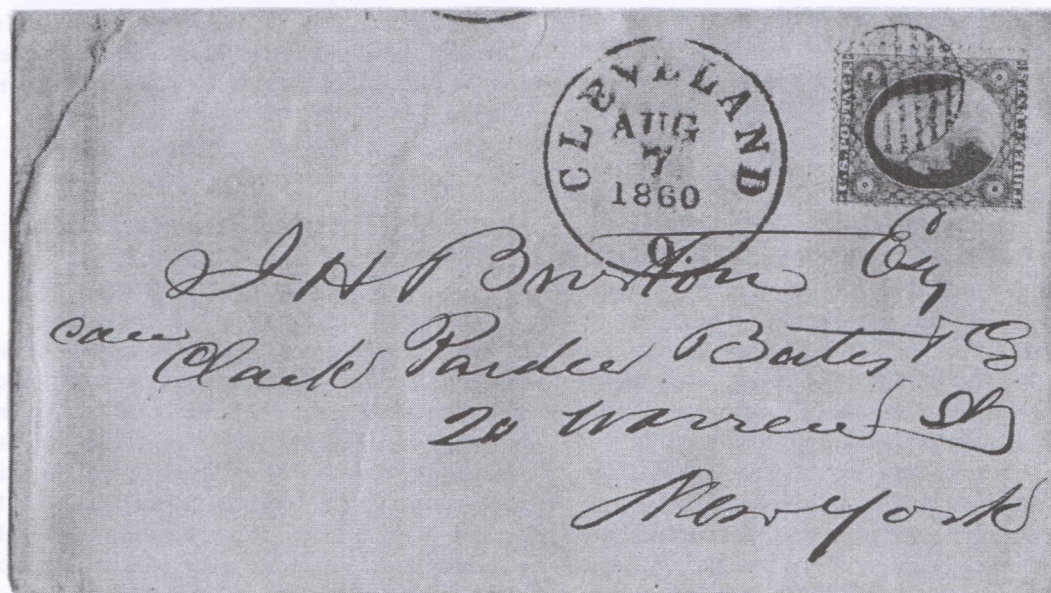 CLEVELAND
AUG
7
1860
O.
U.S. POSTAGE
J H Burton Esq
care
Clark Pardee Bates & Co
20 Warren St
New York